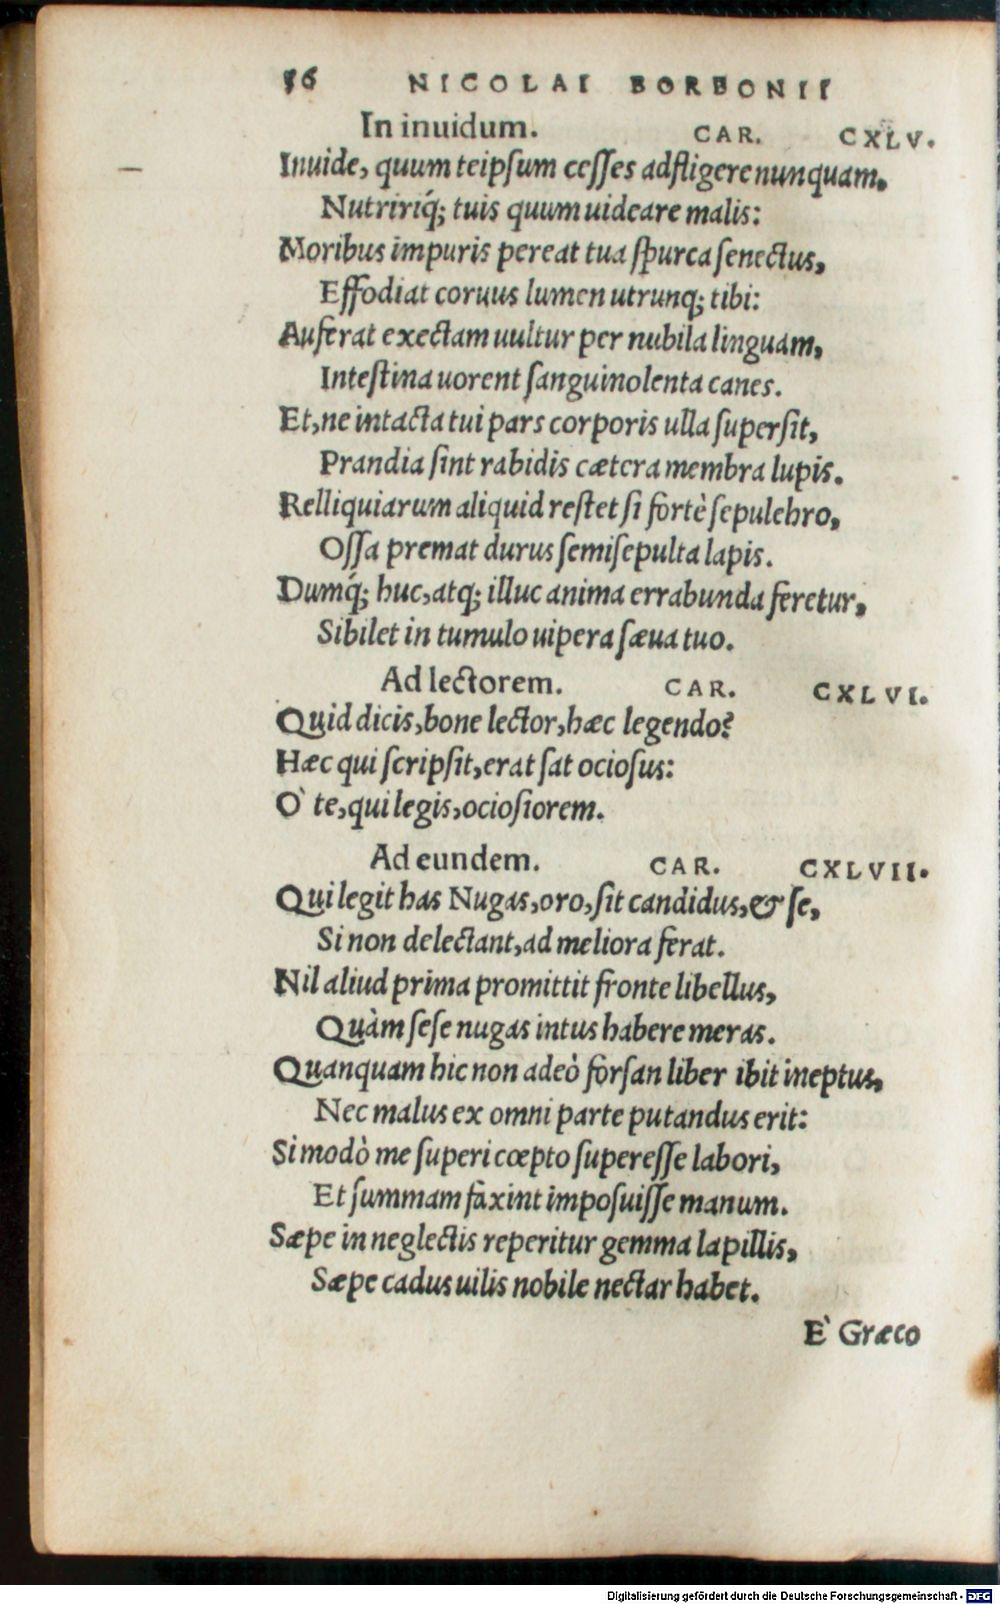 56 NICOLAI BORBONII
In inuidum. CAR. CXLV.
Inuide, quum teipſum ceſſes adfligere nunquam,
Nutririq́; tuis quum uideare malis:
Moribus impuris pereat tua ſpurca ſenectus,
Effodiat coruus lumen utrunq; tibi:
Auferat exectam uultur per nubila linguam,
Inteſtina uorent ſanguinolenta canes.
Et, ne intacta tui pars corporis ulla ſuperſit,
Prandia ſint rabidis cætera membra lupis.
Relliquiarum aliquid reſtet ſi fortè ſepulchro,
Oſſa premat durus ſemiſepulta lapis.
Dumq́; huc, atq; illuc anima errabunda feretur,
Sibilet in tumulo uipera ſæua tuo.
Ad lectorem. CAR. CXLVI.
Quid dicis, bone lector, hæc legendo?
Hæc qui ſcripſit, erat ſat ocioſus:
O` te, qui legis, ocioſiorem.
Ad eundem. CAR. CXLVII.
Qui legit has Nugas, oro, ſit candidus, & ſe,
Si non delectant, ad meliora ferat.
Nil aliud prima promittit fronte libellus,
Quàm ſeſe nugas intus habere meras.
Quanquam hic non adeò forſan liber ibit ineptus,
Nec malus ex omni parte putandus erit:
Si modò me ſuperi cœpto ſupereſſe labori,
Et ſummam faxint impoſuiſſe manum.
Sæpe in neglectis reperitur gemma lapillis,
Sæpe cadus uilis nobile nectar habet.
E` Græco
Digitalisierung gefördert durch die Deutsche Forschungsgemeinschaft - DFG